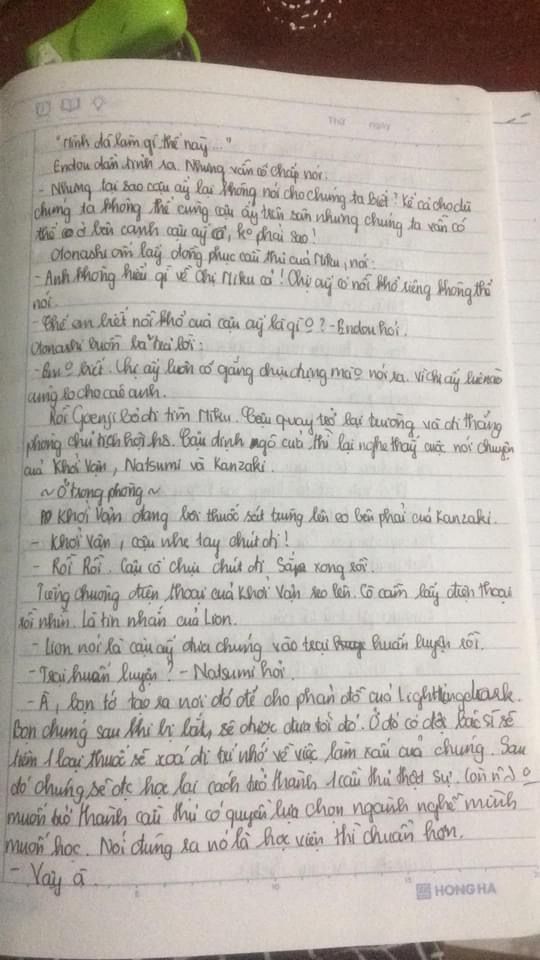 Thứ ngày
"Mình đã làm gì thế này..."
Endou dần tĩnh ra. Nhưng vẫn cố chấp nói:
- Nhưng tại sao cậu ấy lại không nói cho chúng ta biết? Kể cả cho dù
chúng ta không thể cùng cậu ấy trên sân nhưng chúng ta vẫn có
thể ở bên cạnh cậu ấy cơ, ko phải sao!
Otonashi ôm lấy đồng phục cầu thủ của Miku, nói:
- Anh không hiểu gì về chị Miku cả! Chị ấy có nỗi khổ riêng không thể
nói.
- Thế em biết nỗi khổ của cậu ấy là gì o? - Endou hỏi.
Otonashi buồn bã trả lời:
- Em o biết. Chị ấy luôn cố gắng chịu đựng mà o nói ra. Vì chị ấy lúc nào
cũng lo cho các anh.
Rồi Goenji bỏ đi tìm Miku. Cậu quay trở lại trường và đi thẳng
phòng chủ tịch hội hs. Cậu định ngõ cửa thì lại nghe thấy cuộc nói chuyện
của Khởi Vận, Natsumi và Kanzaki.
~ Ở trong phòng ~
Khởi Vận đang bôi thuốc sát trùng lên eo bên phải của Kanzaki.
- Khởi Vận, cậu nhẹ tay chút đi!
- Rồi Rồi. Cậu cố chịu chút đi. Sắp xong rồi.
Tiếng chuông điện thoại của Khởi Vận reo lên. Cô cầm lấy điện thoại
rồi nhìn. Là tin nhắn của Lion.
- Lion nói là cậu ấy đưa chúng vào trại huấn luyện rồi.
- Trại huấn luyện? - Natsumi hỏi.
- À, bọn tớ tạo ra nơi đó để cho phản đồ của Lightlingdark.
Bọn chúng sau khi bị bắt, sẽ được đưa tới đó. Ở đó có đội bác sĩ sẽ
tiêm 1 loại thuốc sẽ xoá đi trí nhớ về việc làm xấu của chúng. Sau
đó chúng sẽ đc học lại cách trở thành 1 cầu thủ thật sự. Còn n~ o
muốn trở thành cầu thủ có quyền lựa chọn ngành nghề mình
muốn học. Nói đúng ra nó là học viện thì chuẩn hơn.
- Vậy à.
HONG HA